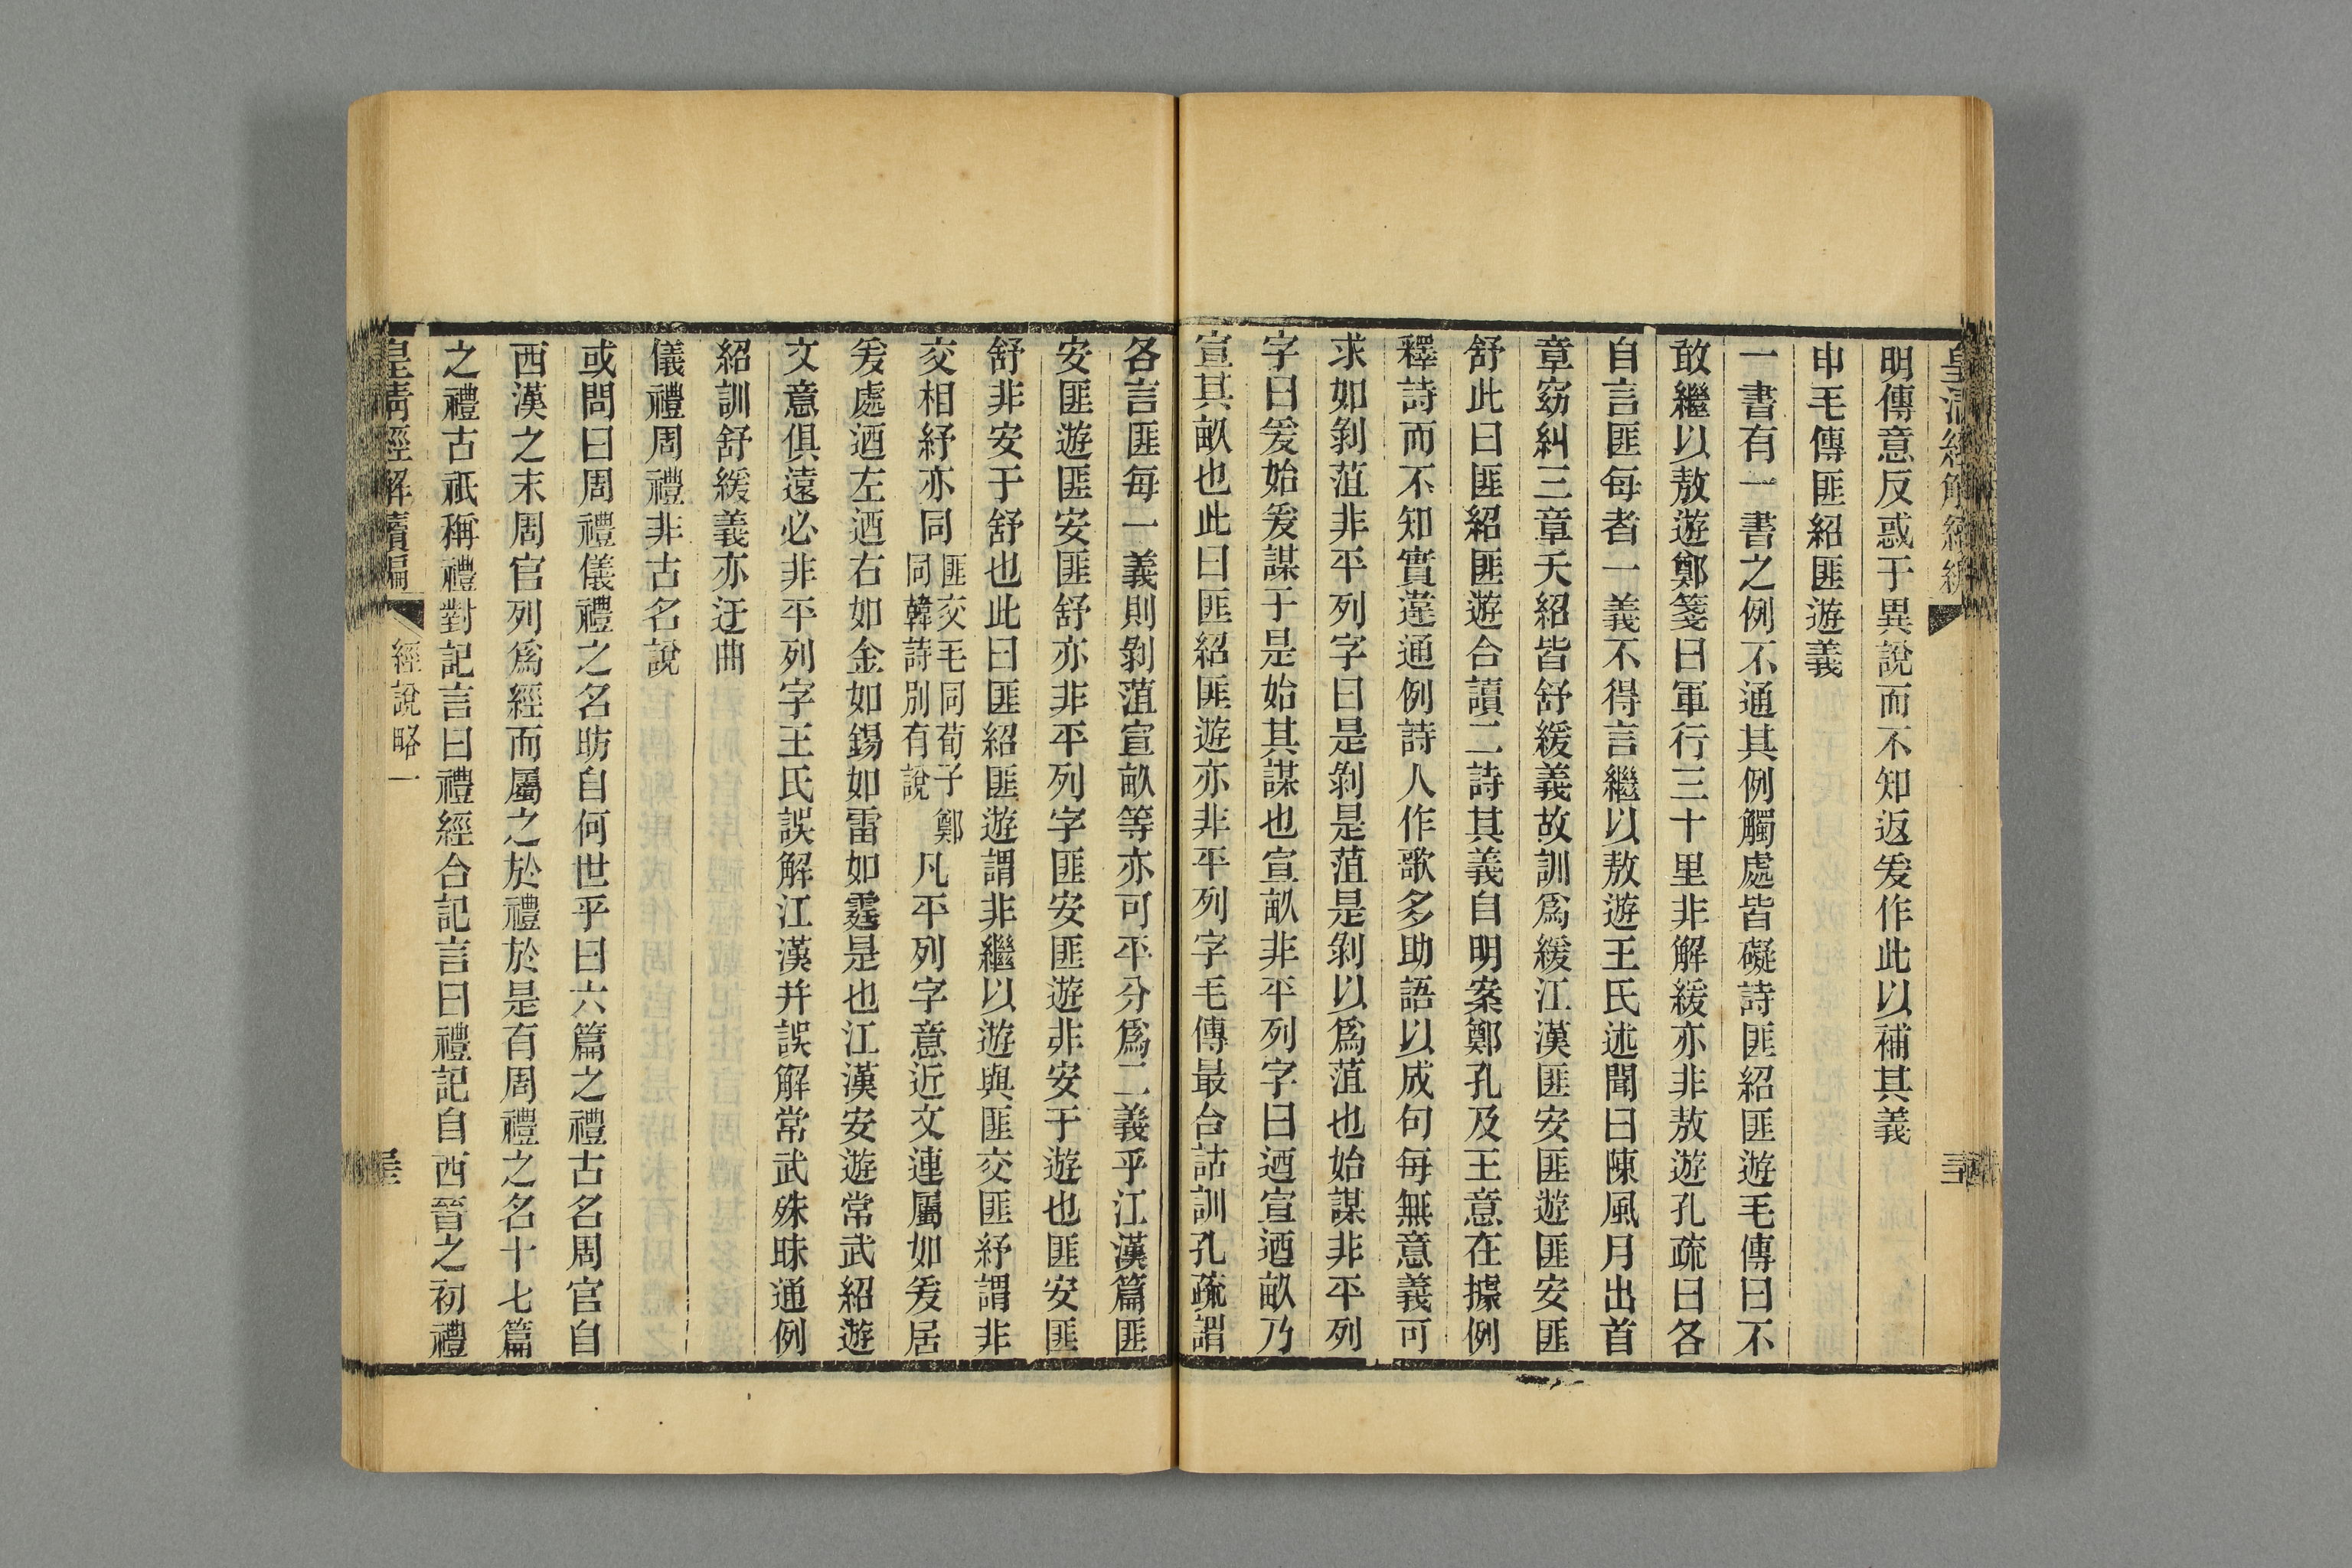 皇清經解續編
明傳意反惑于異說而不知返爰作此以補其義
申毛傳匪紹匪遊義
一書有一書之例不通其例觸處皆礙詩匪紹匪遊毛傳曰不
敢繼以敖遊鄭箋曰軍行三十里非解緩亦非敖遊孔疏曰各
自言匪每者一義不得言繼以敖遊王氏述聞曰陳風月出首
章窈糾三章夭紹皆舒緩義故訓爲緩江漢匪安匪遊匪安匪
舒此曰匪紹匪遊合讀二詩其義自明案鄭孔及王意在據例
釋詩而不知實違通例詩人作歌多助語以成句每無意義可
求如剝菹非平列字曰是剝是菹是剝以爲菹也始謀非平列
字曰爰始爰謀于是始其謀也宣畝非平列字曰迺宣迺畝乃
宣其畝也此曰匪紹匪遊亦非平列字毛傳最合詁訓孔疏謂
各言匪每一義則剝菹宣畝等亦可平分爲二義乎江漢篇匪
安匪遊匪安匪舒亦非平列字匪安匪遊非安于遊也匪安匪
舒非安于舒也此曰匪紹匪遊謂非繼以遊與匪交匪紓謂非
交相紓亦同匪交毛同荀子鄭同韓詩別有說凡平列字意近文連屬如爰居
爰處迺左迺右如金如錫如雷如霆是也江漢安遊常武紹遊
文意俱遠必非平列字王氏誤解江漢并誤解常武殊昧通例
紹訓舒緩義亦迂曲
儀禮周禮非古名說
或問曰周禮儀禮之名昉自何世乎曰六篇之禮古名周官自
西漢之末周官列爲經而屬之於禮於是有周禮之名十七篇
之禮古祇稱禮對記言曰禮經合記言曰禮記自西晉之初禮
皇清經解續編
經說略一